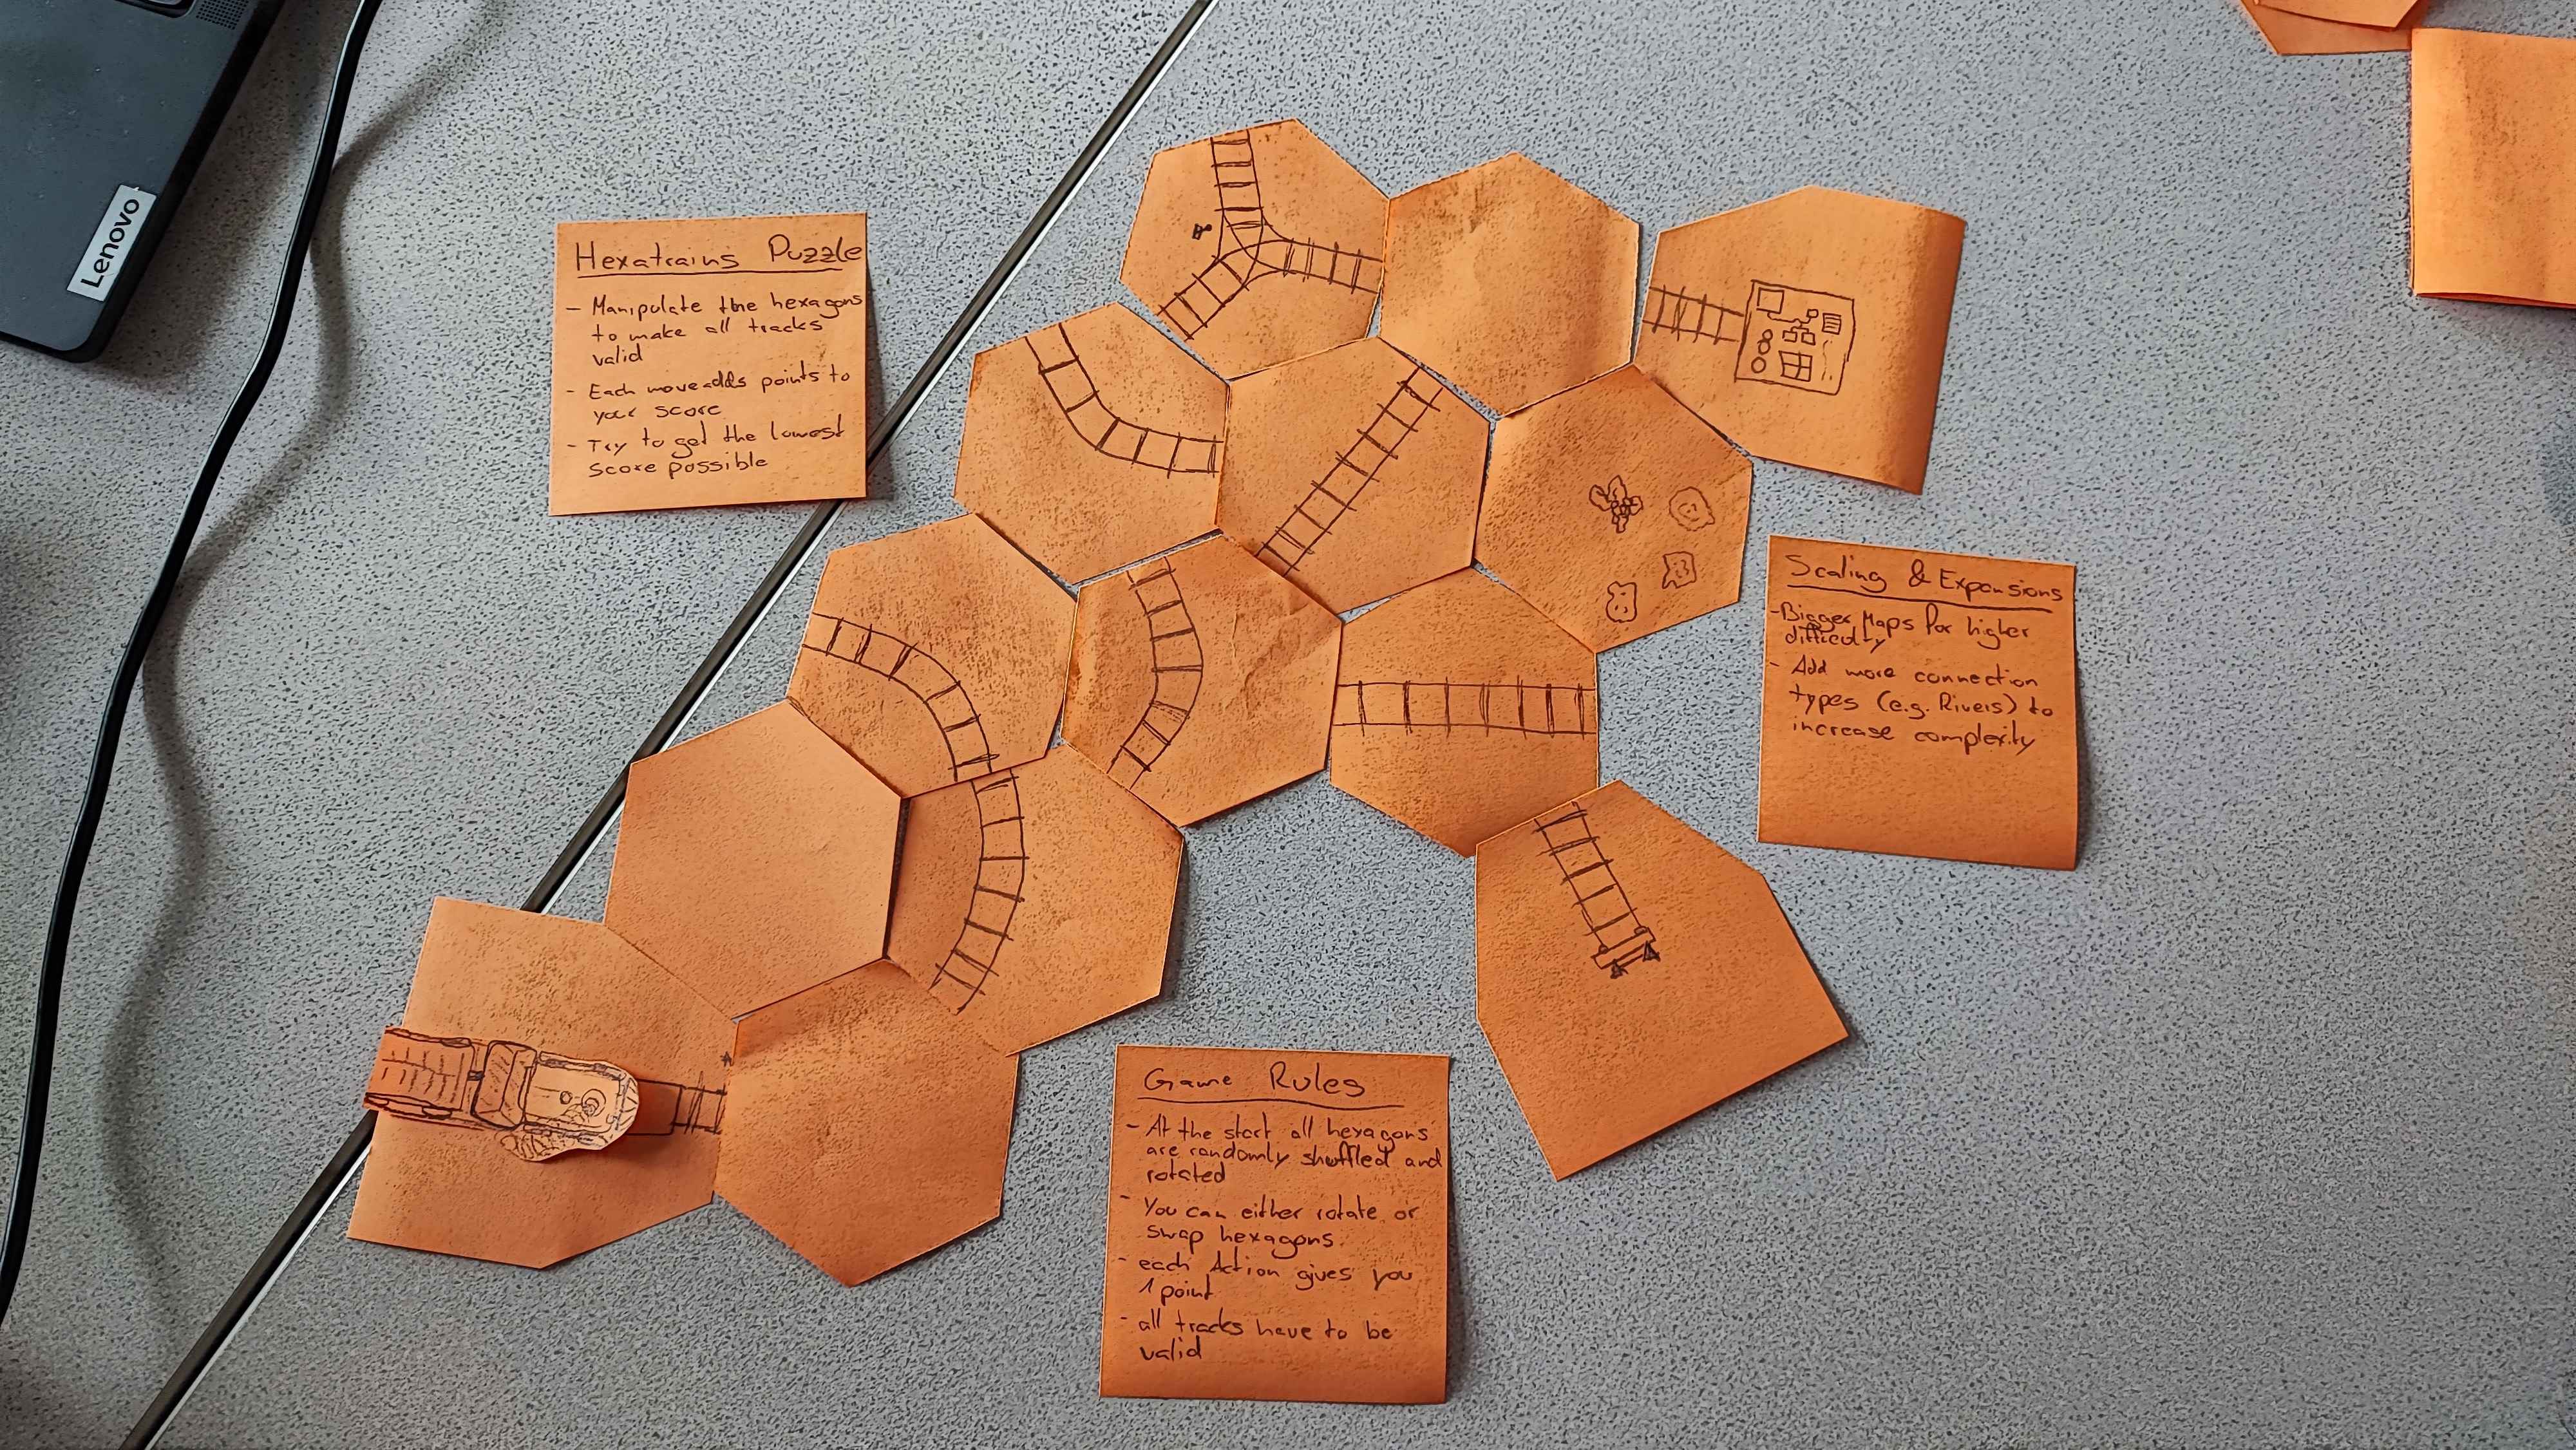 Lenovo
Hexatrains Puzzle
- Manipulate the hexagons
to make all tracks
valid
- Each move adds points to
your score
- Try to get the lowest
score possible
Scaling & Expansions
- Bigger Maps for higher
difficulty
- Add more connection
types (e.g. Rivers) to
increase complexity
Game Rules
- At the start all hexagons
are randomly shuffled and
rotated
- You can either rotate or
swap hexagons
- each Action gives you
1 point
- all tracks have to be
valid